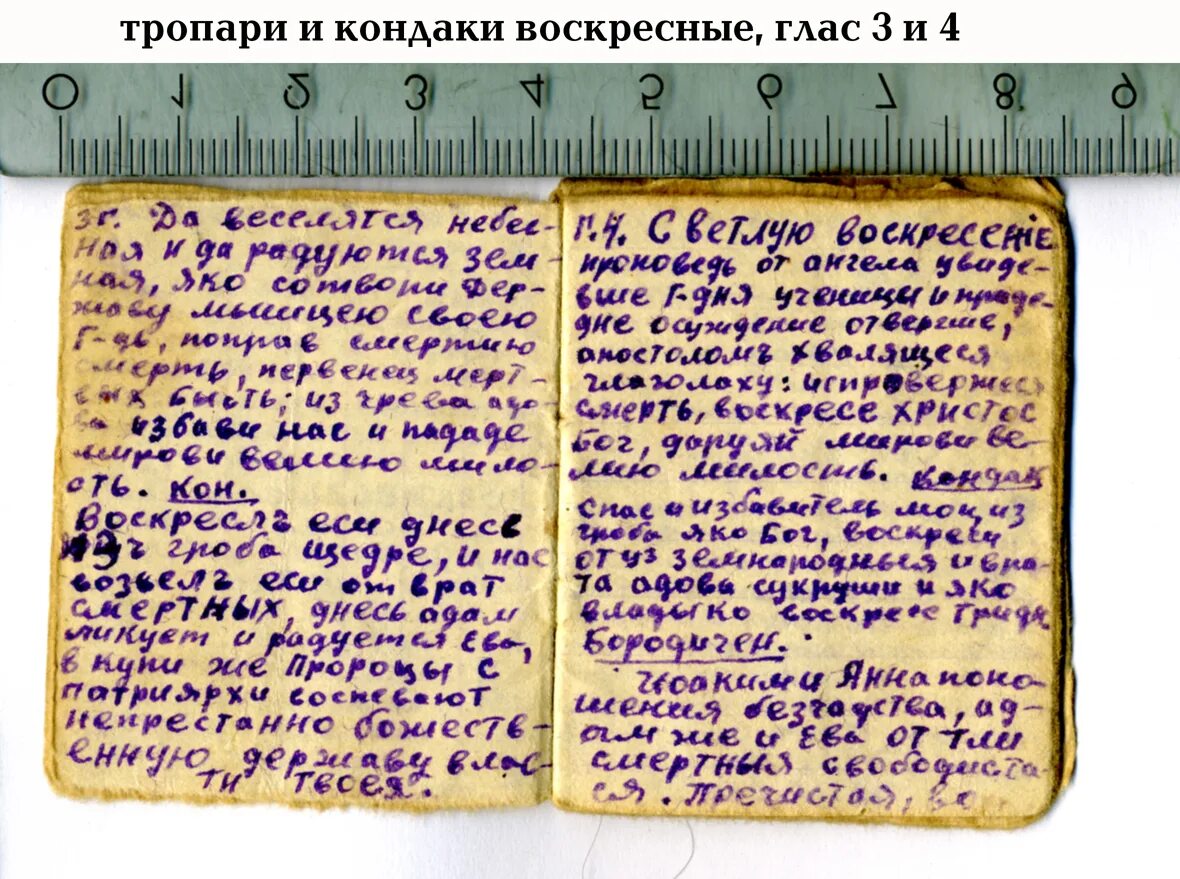 тропари и кондаки воскресные, глас 3 и 4
0 1 2 3 4 5 6 7 8 9
3 г. Да веселятся небес-
ная и да радуются зем-
ная, яко сотвори дер-
жаву мышцею своею
Г-дь, поправ смертию
смерть, первенец мерт-
вых бысть; из чрева адо-
ва избави нас и пададе
мирови велию мило-
сть. Кон.
Воскреслъ еси днесь
изъ гроба щедре, и нас
возвелъ еси от врат
смертных, днесь адам
ликует и радуется Ева,
в купи же Пророцы с
патриярхи воспевают
непрестанно божеств-
енную державу влас-
ти твоея.
Г. 4. Светлую воскресенiе
проповедь от ангела увиде-
вше Г-дня ученицы и праде-
дне осуждение отвергше,
апостоломъ хвалящеся
глаголаху: испровержеся
смерть, воскресе христос
Бог, даруяй мирови ве-
лию милость. Кондак
Спас и избавитель мои, из
гроба яко Бог, воскреси
от уз земнародныя и вра-
та адовы сукруши и яко
владыко воскресе тридн
Бородичен.
Иоаким и Анна поно-
шения безчадства, ад-
ам же и Ева от тли
смертныя свободиста-
ся. Пречистая, во